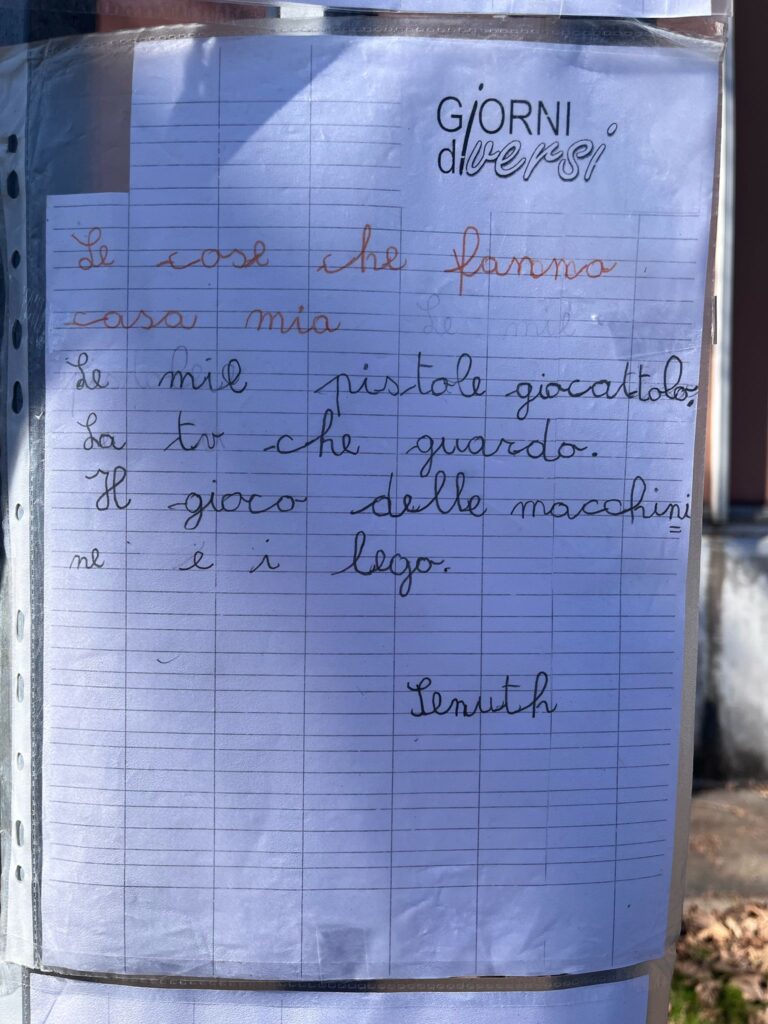 GiORNI
diversi
Le cose che fanno
casa mia
Le mie pistole giocattolo.
La tv che guardo.
Il gioco delle macchini
ne e i lego.
Senuth